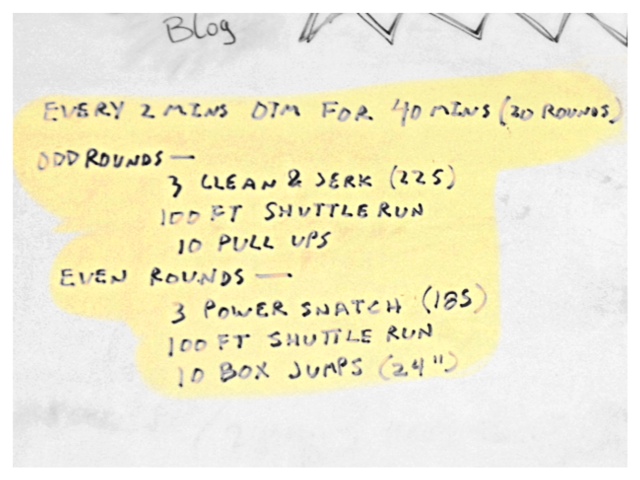 Blog
EVERY 2 MINS OTM FOR 40 MINS (20 ROUNDS)
ODD ROUNDS —
3 CLEAN & JERK (225)
100 FT SHUTTLE RUN
10 PULL UPS
EVEN ROUNDS —
3 POWER SNATCH (185)
100 FT SHUTTLE RUN
10 BOX JUMPS (24")